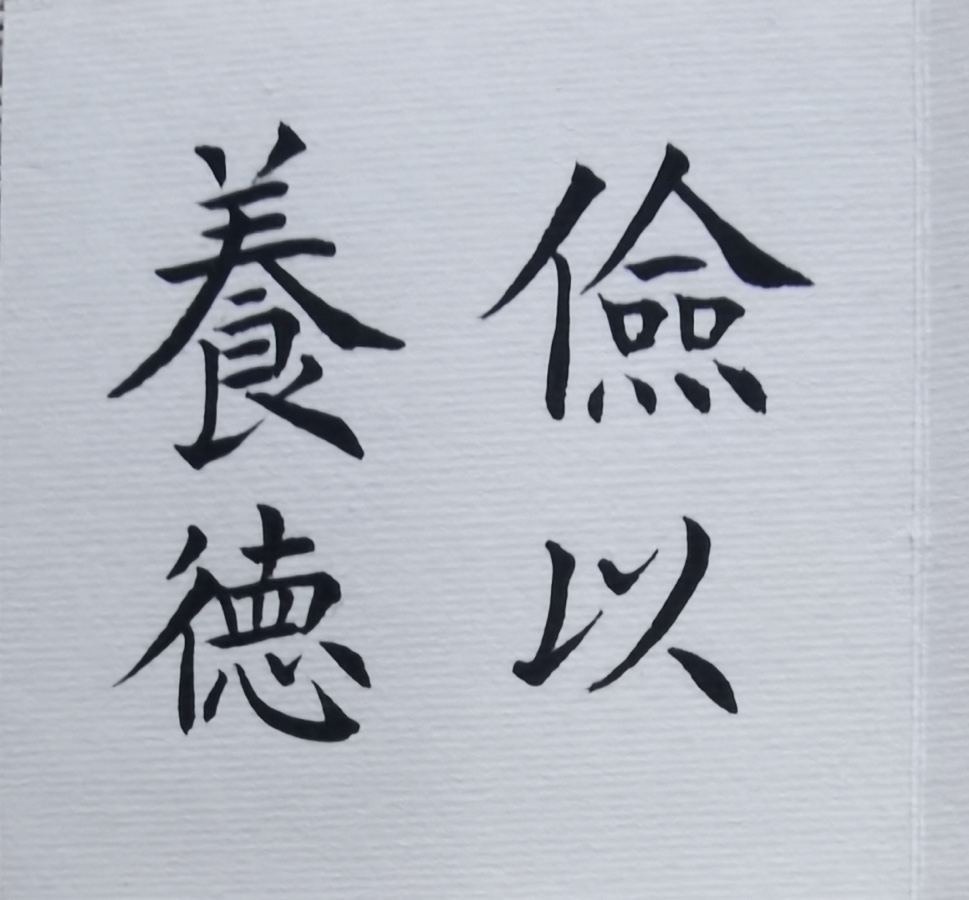 儉以
養德